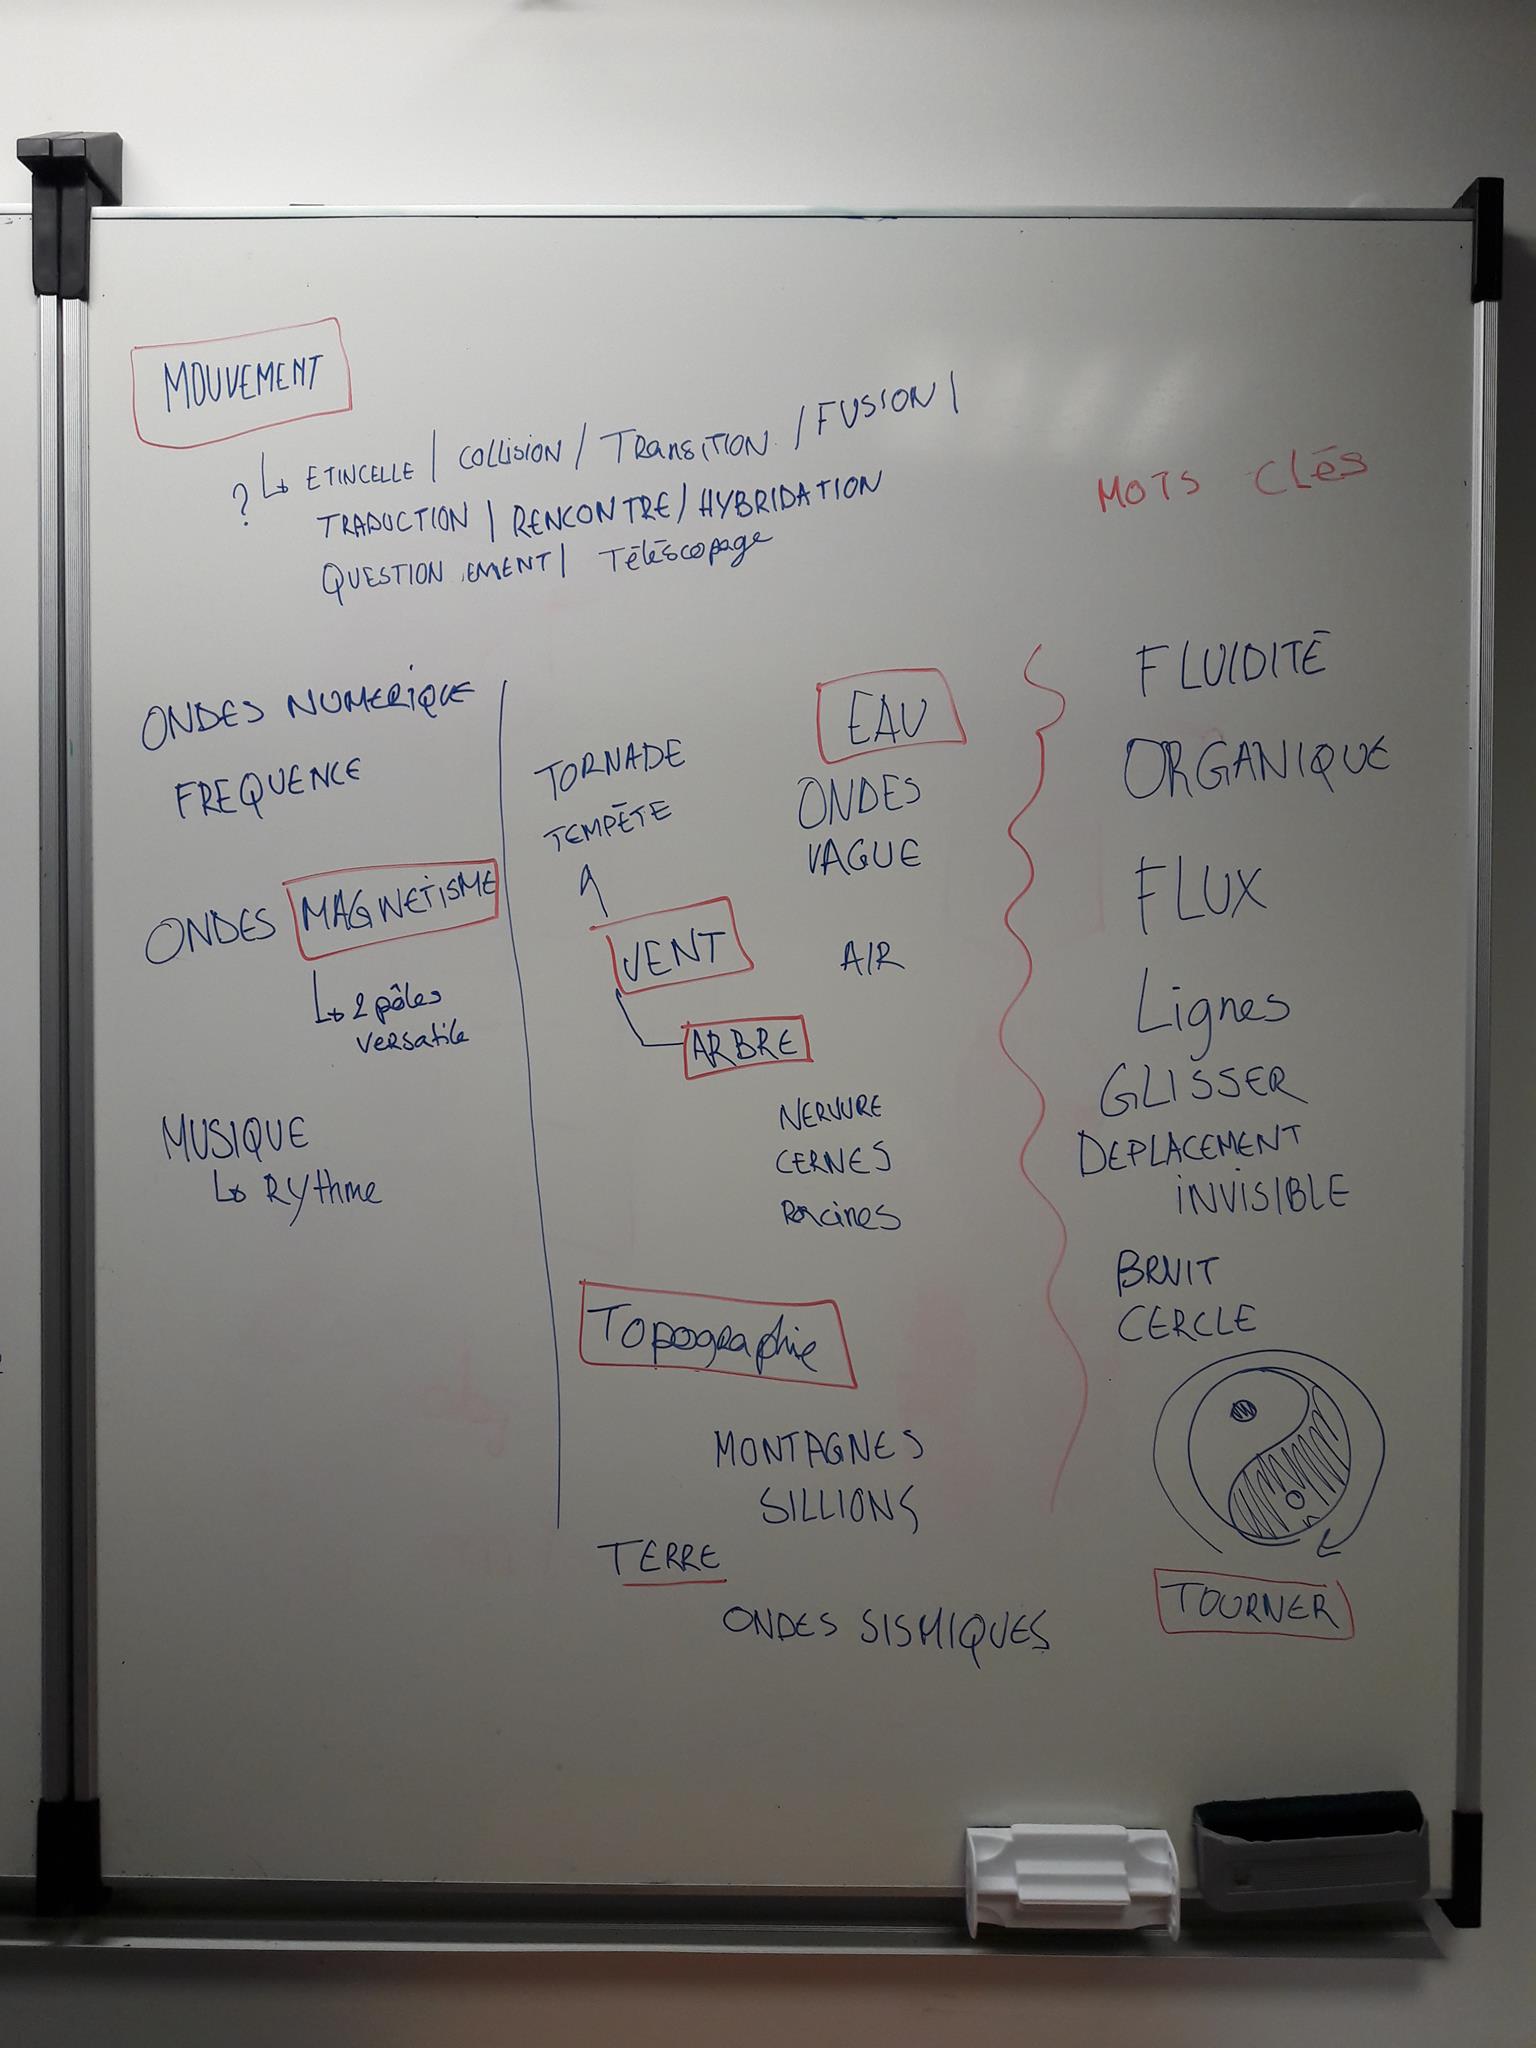 MOUVEMENT
? ↳ ETINCELLE / COLLISION / TRANSITION / FUSION /
TRADUCTION / RENCONTRE / HYBRIDATION
QUESTIONNEMENT / Téléscopage
MOTS CLÉS
ONDES NUMERIQUE
FREQUENCE
ONDES MAGNETISME
↳ 2 pôles
versatile
MUSIQUE
↳ Rythme
TORNADE
TEMPÊTE
VENT
ARBRE
EAU
ONDES
VAGUE
AIR
NERVURE
CERNES
Racines
Topographie
MONTAGNES
SILLIONS
TERRE
ONDES SISMIQUES
FLUIDITÉ
ORGANIQUE
FLUX
Lignes
GLISSER
DEPLACEMENT
INVISIBLE
BRUIT
CERCLE
TOURNER